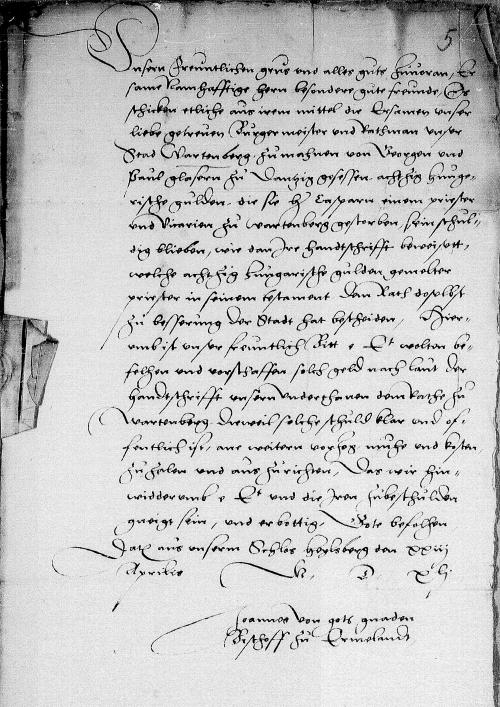 5
Unsern freuntlichen grus und alles guts zuuoran, Er
same Namhafftige hern besondere gute freunde, Es
schicken etliche aus irem mittel die Ersamen unser
liebe getreuen Burgermeister und Rathman unser
Stad Wartenberg zu mahnen von Georgen und
Paul glasern zu Dantzig gesessen achtzig hunge-
rische gulden, die sie h Casparn einem priester
und Vicarien zu wartenberg gestorben, sein schul-
dig blieben, wie dan Ire handtschrifft beweisett,
welche achtzig hungarische gulden gemelter
priester in seinem testament dem Rath doselbst
zu besserung der Stadt hat bescheiden, Hier-
umb ist unser freuntlich Bitt e Et wolten be-
felhen und vorschaffen solch geld nach laut der
handtschrifft unsern underthanen dem Rathe zu
Wartenberg, dieweil solche schuld klar und of-
fentlich ist, ane weitern vorzog, muhe und kosten
zu zalen und auszurichten, Das wir hin-
widderumb e Et und die Iren zubeschulden
gneigt sein, und erbottig, Gote befolhen
Datum aus unserm Schlos heylsberg den xxiij
Aprilis M. D. xli
Joannes von gots gnaden
Bischoff zu Ermelandt